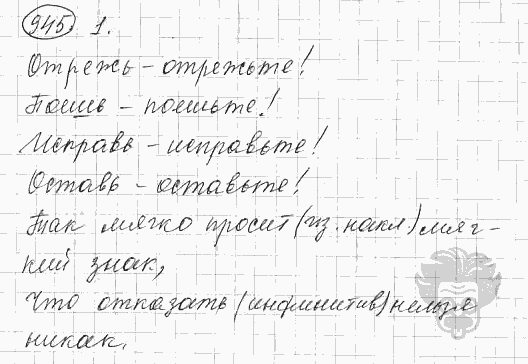 945. 1.
Отрежь – отрежьте!
Поешь – поешьте!
Исправь – исправьте!
Оставь – оставьте!
Так мягко просит (гл. накл) мяг-
кий знак,
Что отказать (инфинитив) нельзя
никак.